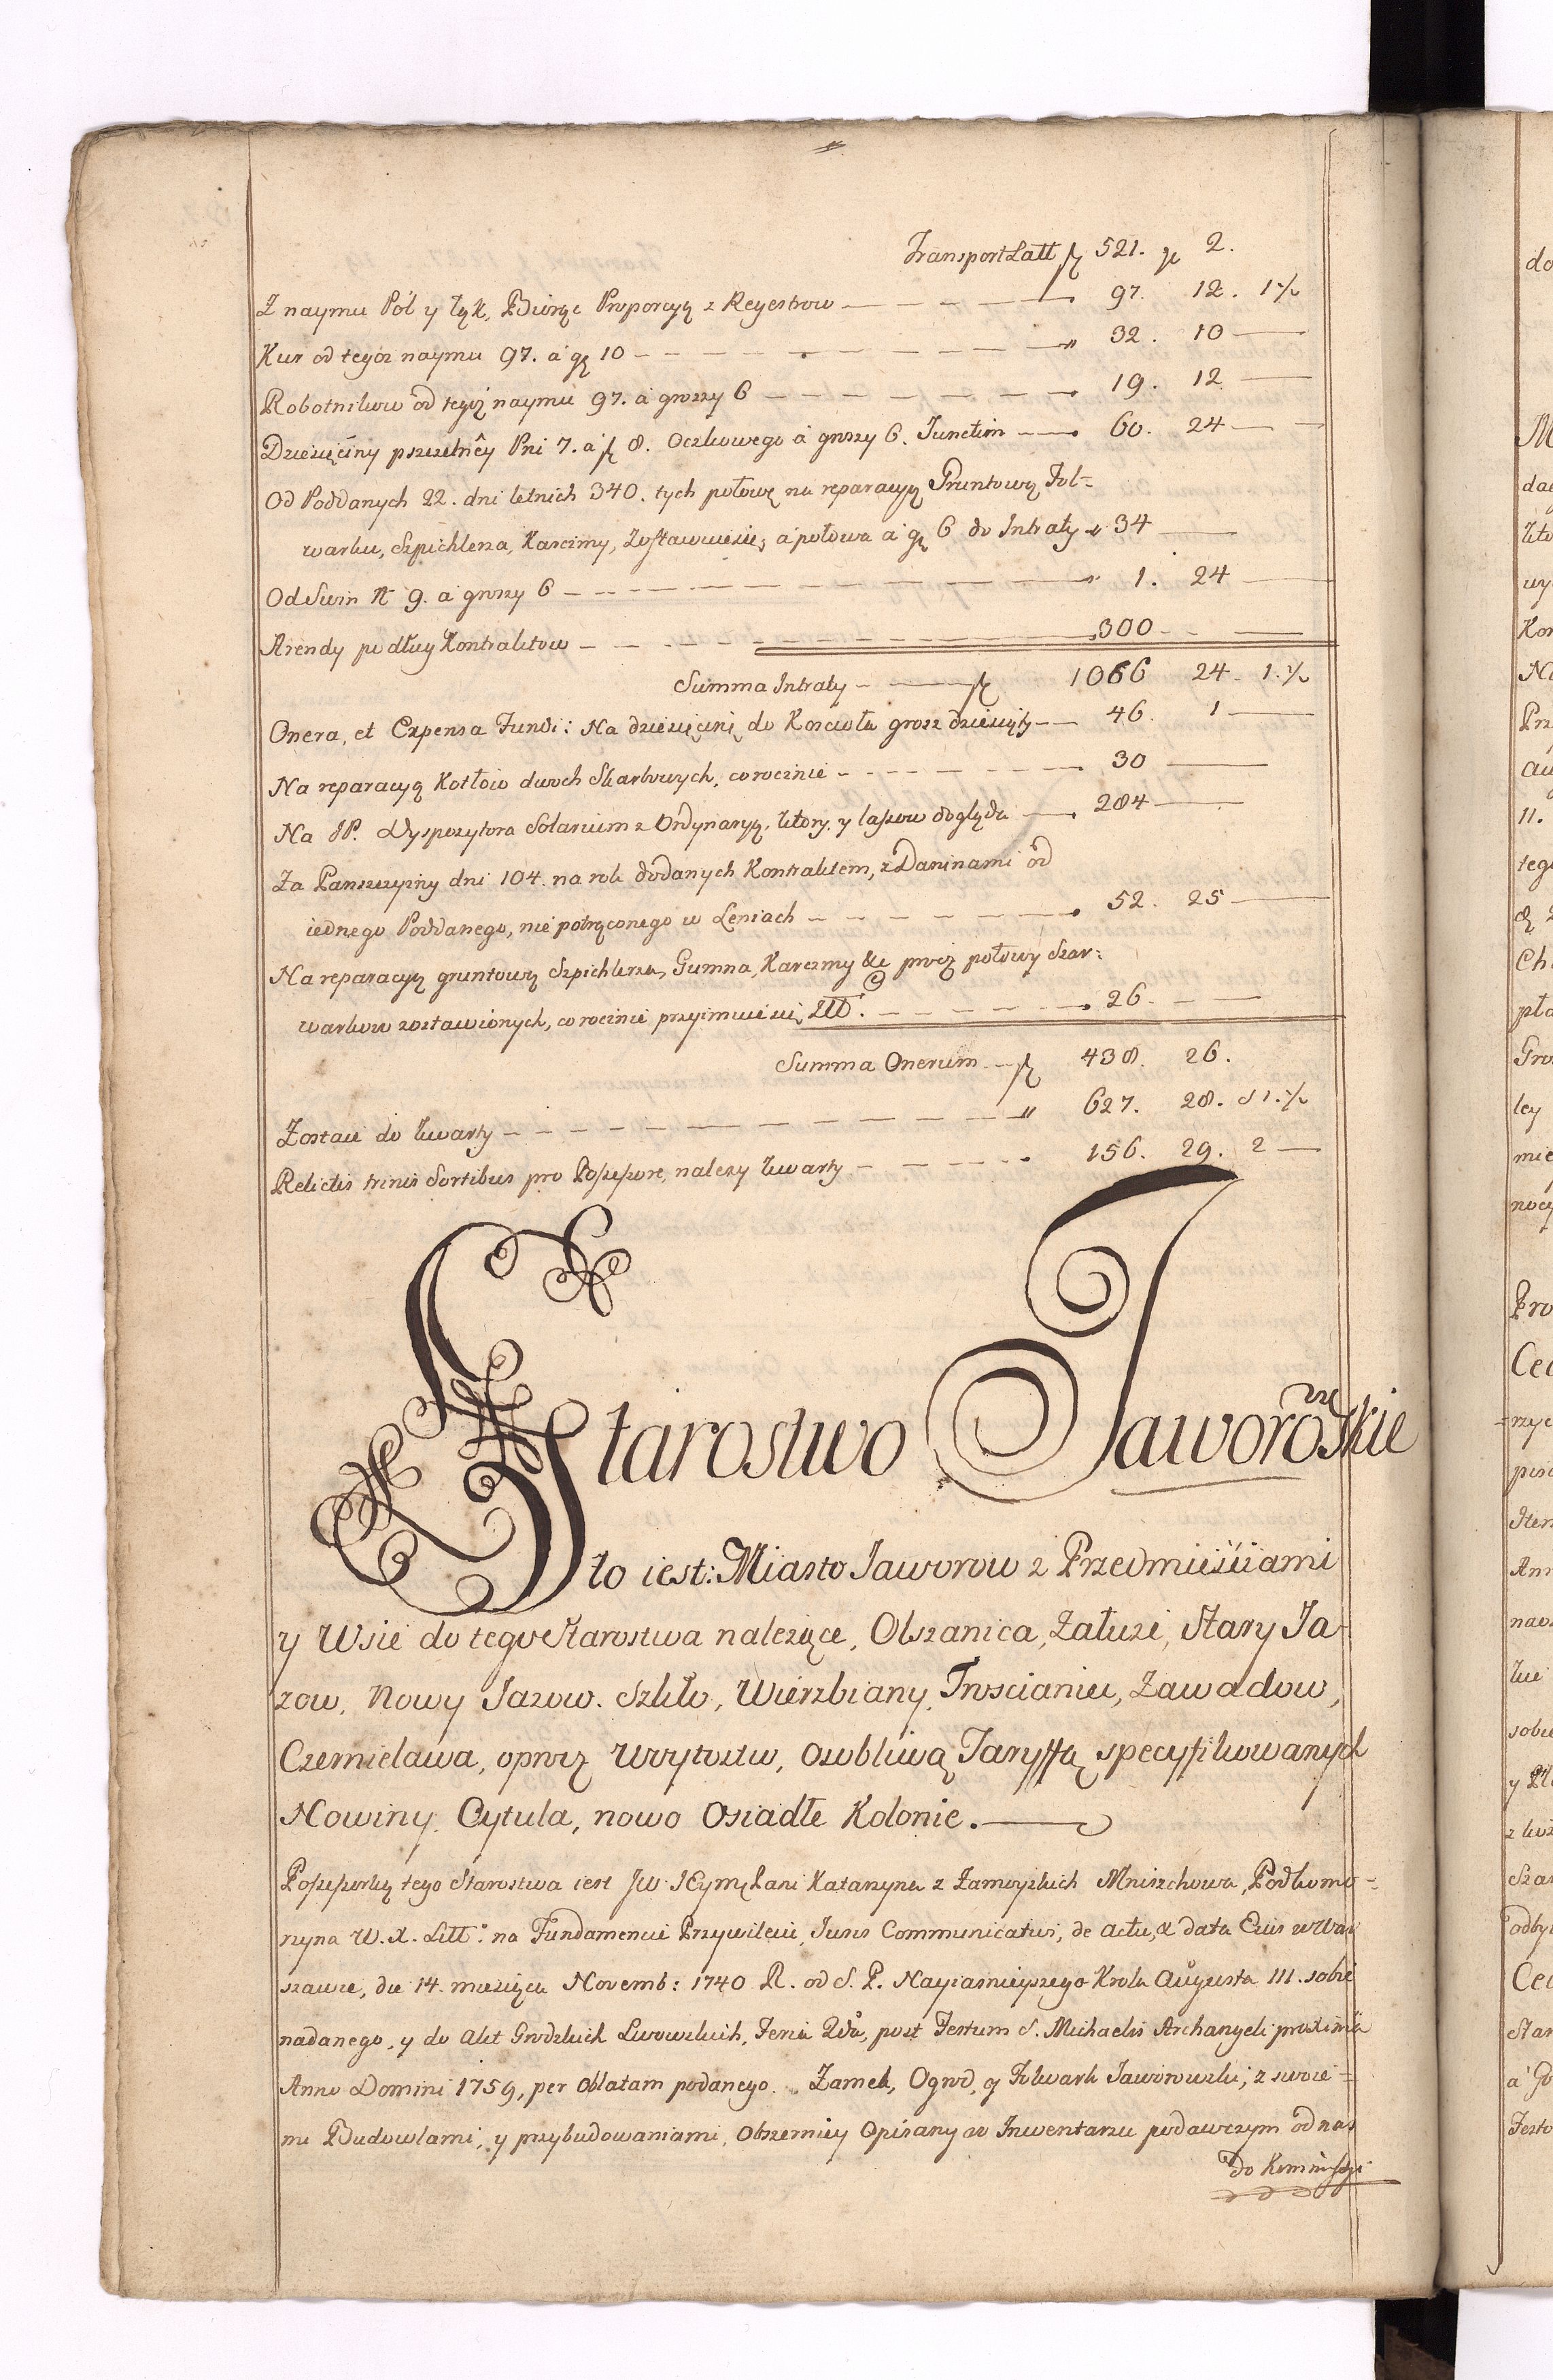 Transport Latt fl 521. gr 2.
Z naymu Pól y Łąk, Biorąc Proporcyą z Reyestrow — 97. 12. 1½
Kur od tegoz naymu 97. a gr 10 — 32. 10 —
Robotnikow od tegoz naymu 97. a groszy 6 — 19. 12 —
Dziesięciny pszczelney Pni 7. a fl 8. Oczkowego a groszy 6. Junctim — 60. 24 —
Od Poddanych 22. dni letnich 340. tych połowę na reparacyą Gruntową Fol=
warku, Szpichlerza, Karczmy, Zostawuie się, a połowa a gr 6 do Intraty 34 —
Od Swin N 9. a groszy 6 — 1. 24 —
Arendy podług Kontraktow — 300 —
Summa Intraty — fl 1066 24. 1.½
Onera, et Expensa Fundi: Na dziesięcinę do Koscioła grosz dziesiąty — 46. 1 —
Na reparacyą Kotłow dwoch Skarbowych, corocznie — 30 —
Na JP. Dyspozytora Solarium z Ordynaryą, ktory y lasow dogląda — 284 —
Za Panszczyzny dni 104. na rok dodanych Kontraktem, z Daninami od
iednego Poddanego, nie potrąconego w Leniach — 52. 25 —
Na reparacyą gruntową Szpichlerza, Gumna, Karczmy &c procz połowy Szar=
warkow zostawionych, corocznie przyimuie się — 26. —
Summa Onerum — fl 438. 26.
Zostaie do kwarty — 627. 28. 1.½
Relictis trinis Sortibus pro Possessore, nalezy kwarty — 156. 29. 2 —
Starostwo Jaworowskie
to iest: Miasto Jaworow z Przedmieściami
y Wsie do tego Starostwa nalezące, Olszanica, Załuze, Stary Ja-
zow, Nowy Jazow. Szkło, Wierzbiany, Troscianiec, Zawadow,
Czernielawa, oprocz Woytostw, osobliwą Taryffą specyfikowanych
Nowiny, Cytula, nowo Osiadłe Kolonie.
Possessorką tego Starostwa iest JW. JEymę Pani Katarzyna z Zamoyskich Mniszchowa, Podkomo=
rzyna W. X. Litt: na Fundamencie Przywileiu, Juris Communicativi, de actu, & data Eius w War
szawie, die 14. miesiąca Novemb: 1740 R. od S. P. Nayiasnieyszego Krola Augusta III. sobie
nadanego, y do Akt Grodzkich Lwowskich, Feria 2da, post Festum S. Michaelis Archangeli proxima
Anno Domini 1759, per Oblatam podanego. Zamek, Ogrod, y Folwark Jaworowski, z swoie=
mi Budowlami, y przybudowaniami, Obszerniey Opisany w Inwentarzu podawczym od nas
do Kommissyi